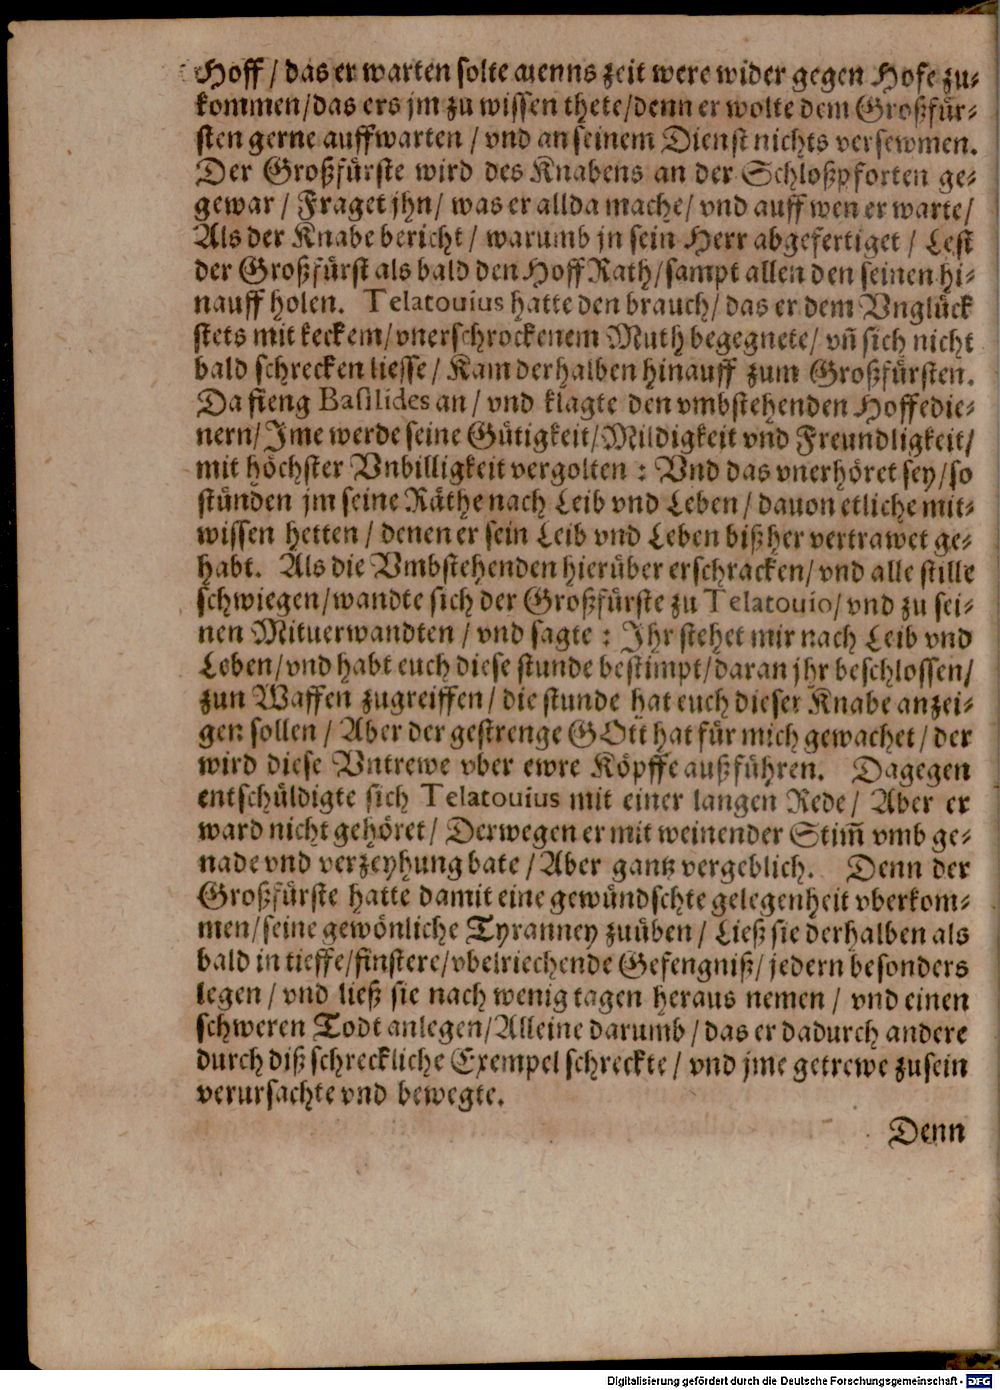 Hoff / das er warten solte wenns zeit were wider gegen Hofe zu⸗
kommen/das ers jm zu wissen thete/denn er wolte dem Großfür⸗
sten gerne auffwarten / vnd an seinem Dienst nichts versewmen.
Der Großfürste wird des Knabens an der Schloßpforten ge⸗
gewar / Fraget jhn/ was er allda mache/ vnd auff wen er warte/
Als der Knabe bericht/ warumb jn sein Herr abgefertiget / Lest
der Großfürst als bald den Hoff Rath/sampt allen den seinen hi⸗
nauff holen. Telatouius hatte den brauch/ das er dem Vnglück
stets mit keckem/vnerschrockenem Muth begegnete/ vñ sich nicht
bald schrecken liesse/ Kam derhalben hinauff zum Großfürsten.
Da fieng Basilides an / vnd klagte den vmbstehenden Hoffedie⸗
nern/ Jme werde seine Gütigkeit/Mildigkeit vnd Freundligkeit/
mit höchster Vnbilligkeit vergolten : Vnd das vnerhöret sey/so
stünden jm seine Räthe nach Leib vnd Leben / dauon etliche mit⸗
wissen hetten / denen er sein Leib vnd Leben bißher vertrawet ge⸗
habt. Als die Vmbstehenden hierüber erschracken/ vnd alle stille
schwiegen/wandte sich der Großfürste zu Telatouio/ vnd zu sei⸗
nen Mituerwandten / vnd sagte : Jhr stehet mir nach Leib vnd
Leben/vnd habt euch diese stunde bestimpt/daran jhr beschlossen/
zun Waffen zugreiffen/ die stunde hat euch dieser Knabe anzei⸗
gen sollen / Aber der gestrenge GOtt hat für mich gewachet / der
wird diese Vntrewe vber ewre Köpffe außführen. Dagegen
entschüldigte sich Telatouius mit einer langen Rede/ Aber er
ward nicht gehöret/ Derwegen er mit weinender Stim̃ vmb ge⸗
nade vnd verzeyhung bate / Aber gantz vergeblich. Denn der
Großfürste hatte damit eine gewündschte gelegenheit vberkom⸗
men/seine gewönliche Tyranney zuüben / Ließ sie derhalben als
bald in tieffe/finstere/vbelriechende Gefengniß/ jedern besonders
legen / vnd ließ sie nach wenig tagen heraus nemen / vnd einen
schweren Todt anlegen/Alleine darumb / das er dadurch andere
durch diß schreckliche Exempel schreckte / vnd jme getrewe zusein
verursachte vnd bewegte.
Denn
Digitalisierung gefördert durch die Deutsche Forschungsgemeinschaft - DFG